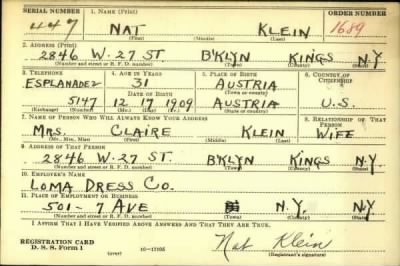 SERIAL NUMBER 1. NAME (Print) ORDER NUMBER
447 NAT KLEIN 1689
(First) (Middle) (Last)
2. ADDRESS (Print)
2846 W. 27 ST B'KLYN KINGS N.Y
(Number and street or R. F. D. number) (Town) (County) (State)
3. TELEPHONE 4. AGE IN YEARS 5. PLACE OF BIRTH 6. COUNTRY OF CITIZENSHIP
ESPLANADE2 31 AUSTRIA
DATE OF BIRTH (Town or county)
5147 12 17 1909 AUSTRIA U.S.
(Exchange) (Number) (Mo.) (Day) (Yr.) (State or country)
7. NAME OF PERSON WHO WILL ALWAYS KNOW YOUR ADDRESS 8. RELATIONSHIP OF THAT PERSON
MRS. CLAIRE KLEIN WIFE
(Mr., Mrs., Miss) (First) (Middle) (Last)
9. ADDRESS OF THAT PERSON
2846 W. 27 ST. B'KLYN KINGS N.Y.
(Number and street or R. F. D. number) (Town) (County) (State)
10. EMPLOYER'S NAME
LOMA DRESS CO.
11. PLACE OF EMPLOYMENT OR BUSINESS
501 - 7 AVE N.Y. NY
(Number and street or R. F. D. number) (Town) (County) (State)
I AFFIRM THAT I HAVE VERIFIED ABOVE ANSWERS AND THAT THEY ARE TRUE.
REGISTRATION CARD
D. S. S. Form 1 (over) 16-17105 Nat Klein
(Registrant's signature)